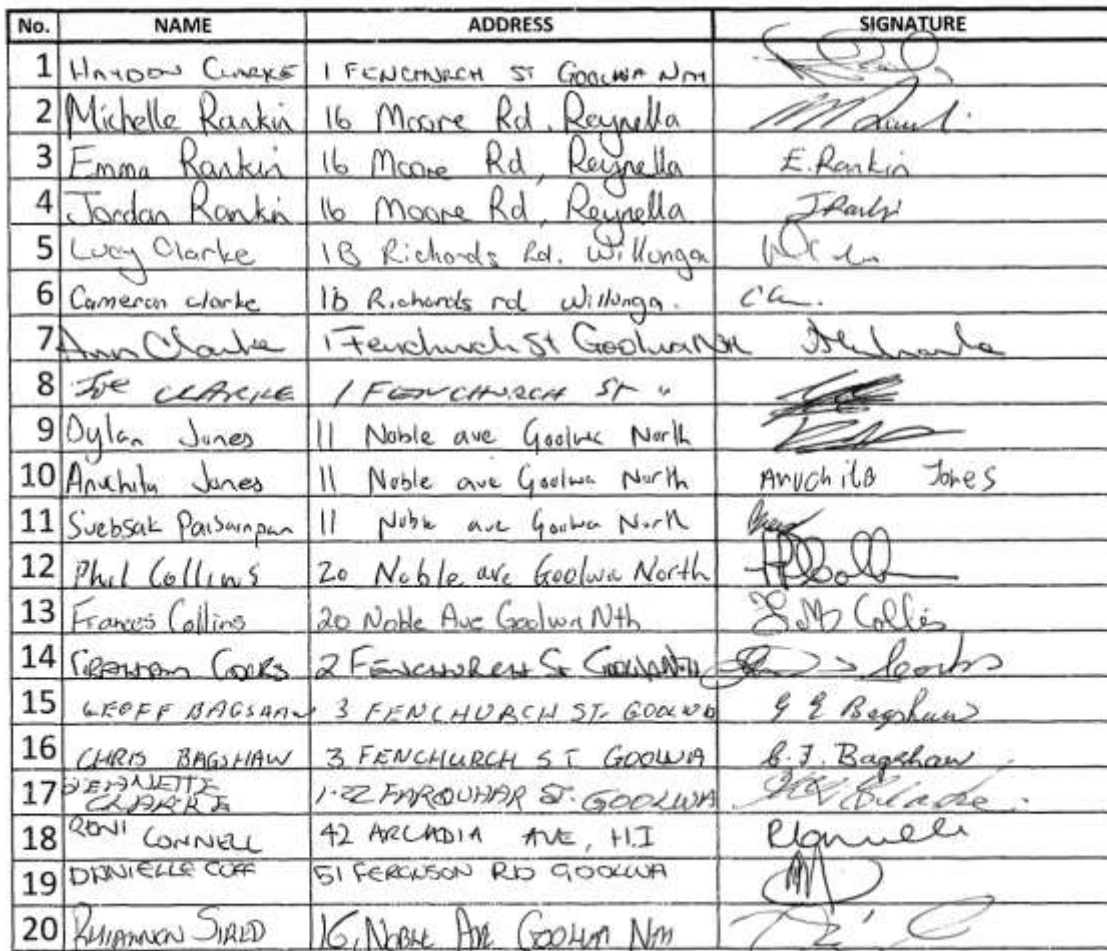 No. NAME ADDRESS SIGNATURE
1 HAYDON CLARKE 1 FENCHURCH ST GOOLWA NTH
2 Michelle Rankin 16 Moore Rd, Reynella
3 Emma Rankin 16 Moore Rd, Reynella E.Rankin
4 Jordan Rankin 16 Moore Rd, Reynella
5 Lucy Clarke Richards Rd. Willunga
6 Cameron Clarke Richards rd Willunga.
7 Ann Clarke 1 Fenchurch St Goolwa Nth
8 CLARKE 1 FENCHURCH ST "
9 Dylan Jones 11 Noble ave Goolwa North
10 Jones 11 Noble ave Goolwa North Jones
11 Suebsak 11 Noble ave Goolwa North
12 Phil Collins 20 Noble ave Goolwa North
13 Frances Collins 20 Noble Ave Goolwa Nth
14 2 FENCHURCH St GOOLWA NTH
15 GEOFF BAGSHAW 3 FENCHURCH ST. GOOLWA G E Bagshaw
16 CHRIS BAGSHAW 3 FENCHURCH ST GOOLWA Bagshaw
17 JEANETTE CLARKE FARQUHAR ST. GOOLWA
18 CONNELL 42 ARCADIA AVE, H.I
19 DANIELLE CUFF 51 FERGUSON RD GOOLWA
20 RHIANNON SIRED 16, NOBLE AVE GOOLWA NTH